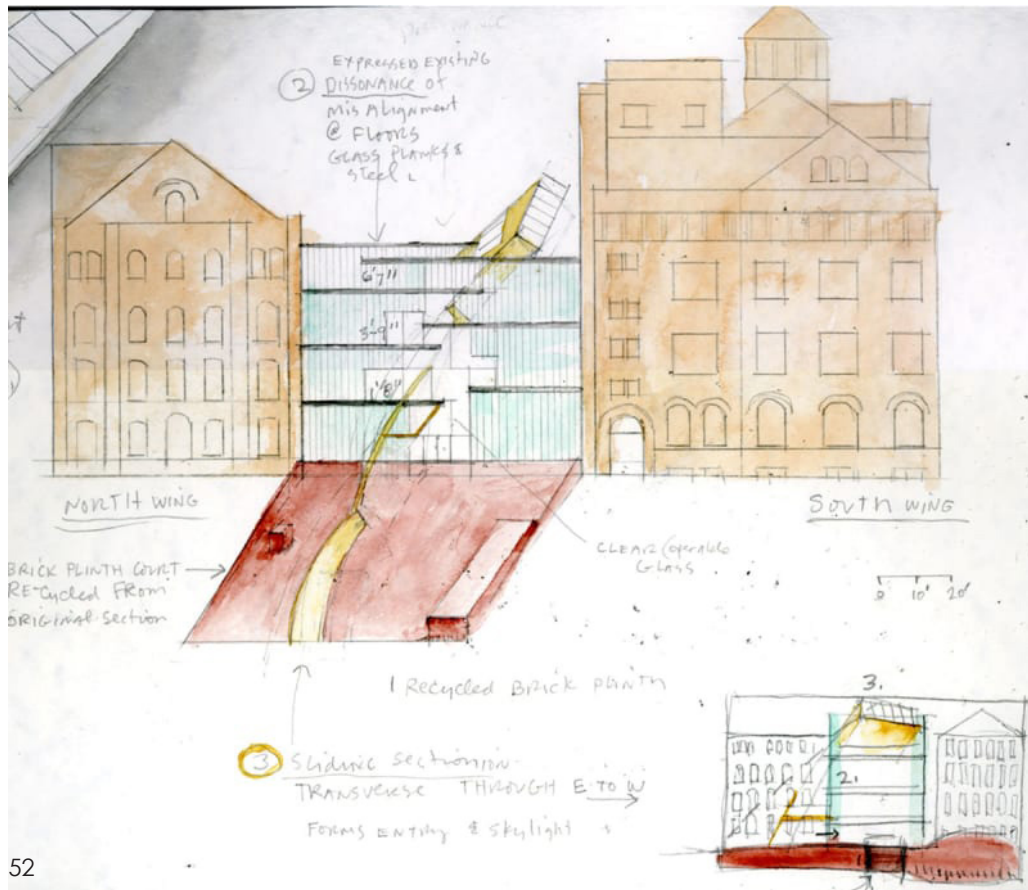 ② EXPRESSED EXISTING
DISSONANCE of
Mis Alignment
@ FLOORS
GLASS PLANKS &
steel
6'7"
3'-9"
1'8"
NORTH WING
SOUTH WING
BRICK PLINTH COURT
RECycled FROM
ORIGINAL Section
CLEAR operable
GLASS
0 10' 20'
1 Recycled BRICK PLINTH
③ SLIDING SECTION
TRANSVERSE THROUGH E TO W
FORMS ENTRY & SKYLIGHT
3.
2.
52